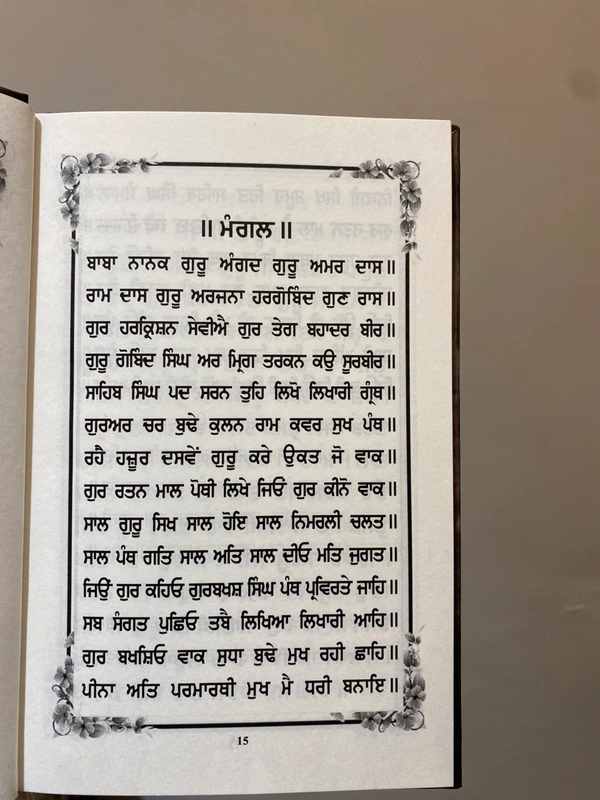 ॥ ਮੰਗਲ ॥
ਬਾਬਾ ਨਾਨਕ ਗੁਰੂ ਅੰਗਦ ਗੁਰੂ ਅਮਰ ਦਾਸ॥
ਰਾਮ ਦਾਸ ਗੁਰੂ ਅਰਜਨਾ ਹਰਗੋਬਿੰਦ ਗੁਣ ਰਾਸ॥
ਗੁਰ ਹਰਕ੍ਰਿਸ਼ਨ ਸੇਵੀਐ ਗੁਰ ਤੇਗ ਬਹਾਦਰ ਬੀਰ॥
ਗੁਰੂ ਗੋਬਿੰਦ ਸਿੰਘ ਅਰ ਮ੍ਰਿਗ ਤਰਕਨ ਕਉ ਸੂਰਬੀਰ॥
ਸਾਹਿਬ ਸਿੰਘ ਪਦ ਸਰਨ ਤੁਹਿ ਲਿਖੋ ਲਿਖਾਰੀ ਗ੍ਰੰਥ॥
ਗੁਰਅਰ ਚਰ ਬੁਢੇ ਕੁਲਨ ਰਾਮ ਕਵਰ ਸੁਖ ਪੰਥ॥
ਰਹੈ ਹਜ਼ੂਰ ਦਸਵੇਂ ਗੁਰੂ ਕਰੇ ਉਕਤ ਜੋ ਵਾਕ॥
ਗੁਰ ਰਤਨ ਮਾਲ ਪੋਥੀ ਲਿਖੇ ਜਿਓਂ ਗੁਰ ਕੀਨੋ ਵਾਕ॥
ਸਾਲ ਗੁਰੂ ਸਿਖ ਸਾਲ ਹੋਇ ਸਾਲ ਨਿਮਰਲੀ ਚਲਤ॥
ਸਾਲ ਪੰਥ ਗਤਿ ਸਾਲ ਅਤਿ ਸਾਲ ਦੀਓ ਮਤਿ ਜੁਗਤ॥
ਜਿਉਂ ਗੁਰ ਕਹਿਓ ਗੁਰਬਖਸ਼ ਸਿੰਘ ਪੰਥ ਪ੍ਰਵਿਰਤੇ ਜਾਹਿ॥
ਸਬ ਸੰਗਤ ਪੁਛਿਓ ਤਬੈ ਲਿਖਿਆ ਲਿਖਾਰੀ ਆਹਿ॥
ਗੁਰ ਬਖਸ਼ਿਓ ਵਾਕ ਸੁਧਾ ਬੁਢੇ ਮੁਖ ਰਹੀ ਛਾਹਿ॥
ਪੀਨਾ ਅਤਿ ਪਰਮਾਰਥੀ ਮੁਖ ਮੈ ਧਰੀ ਬਨਾਇ॥
15